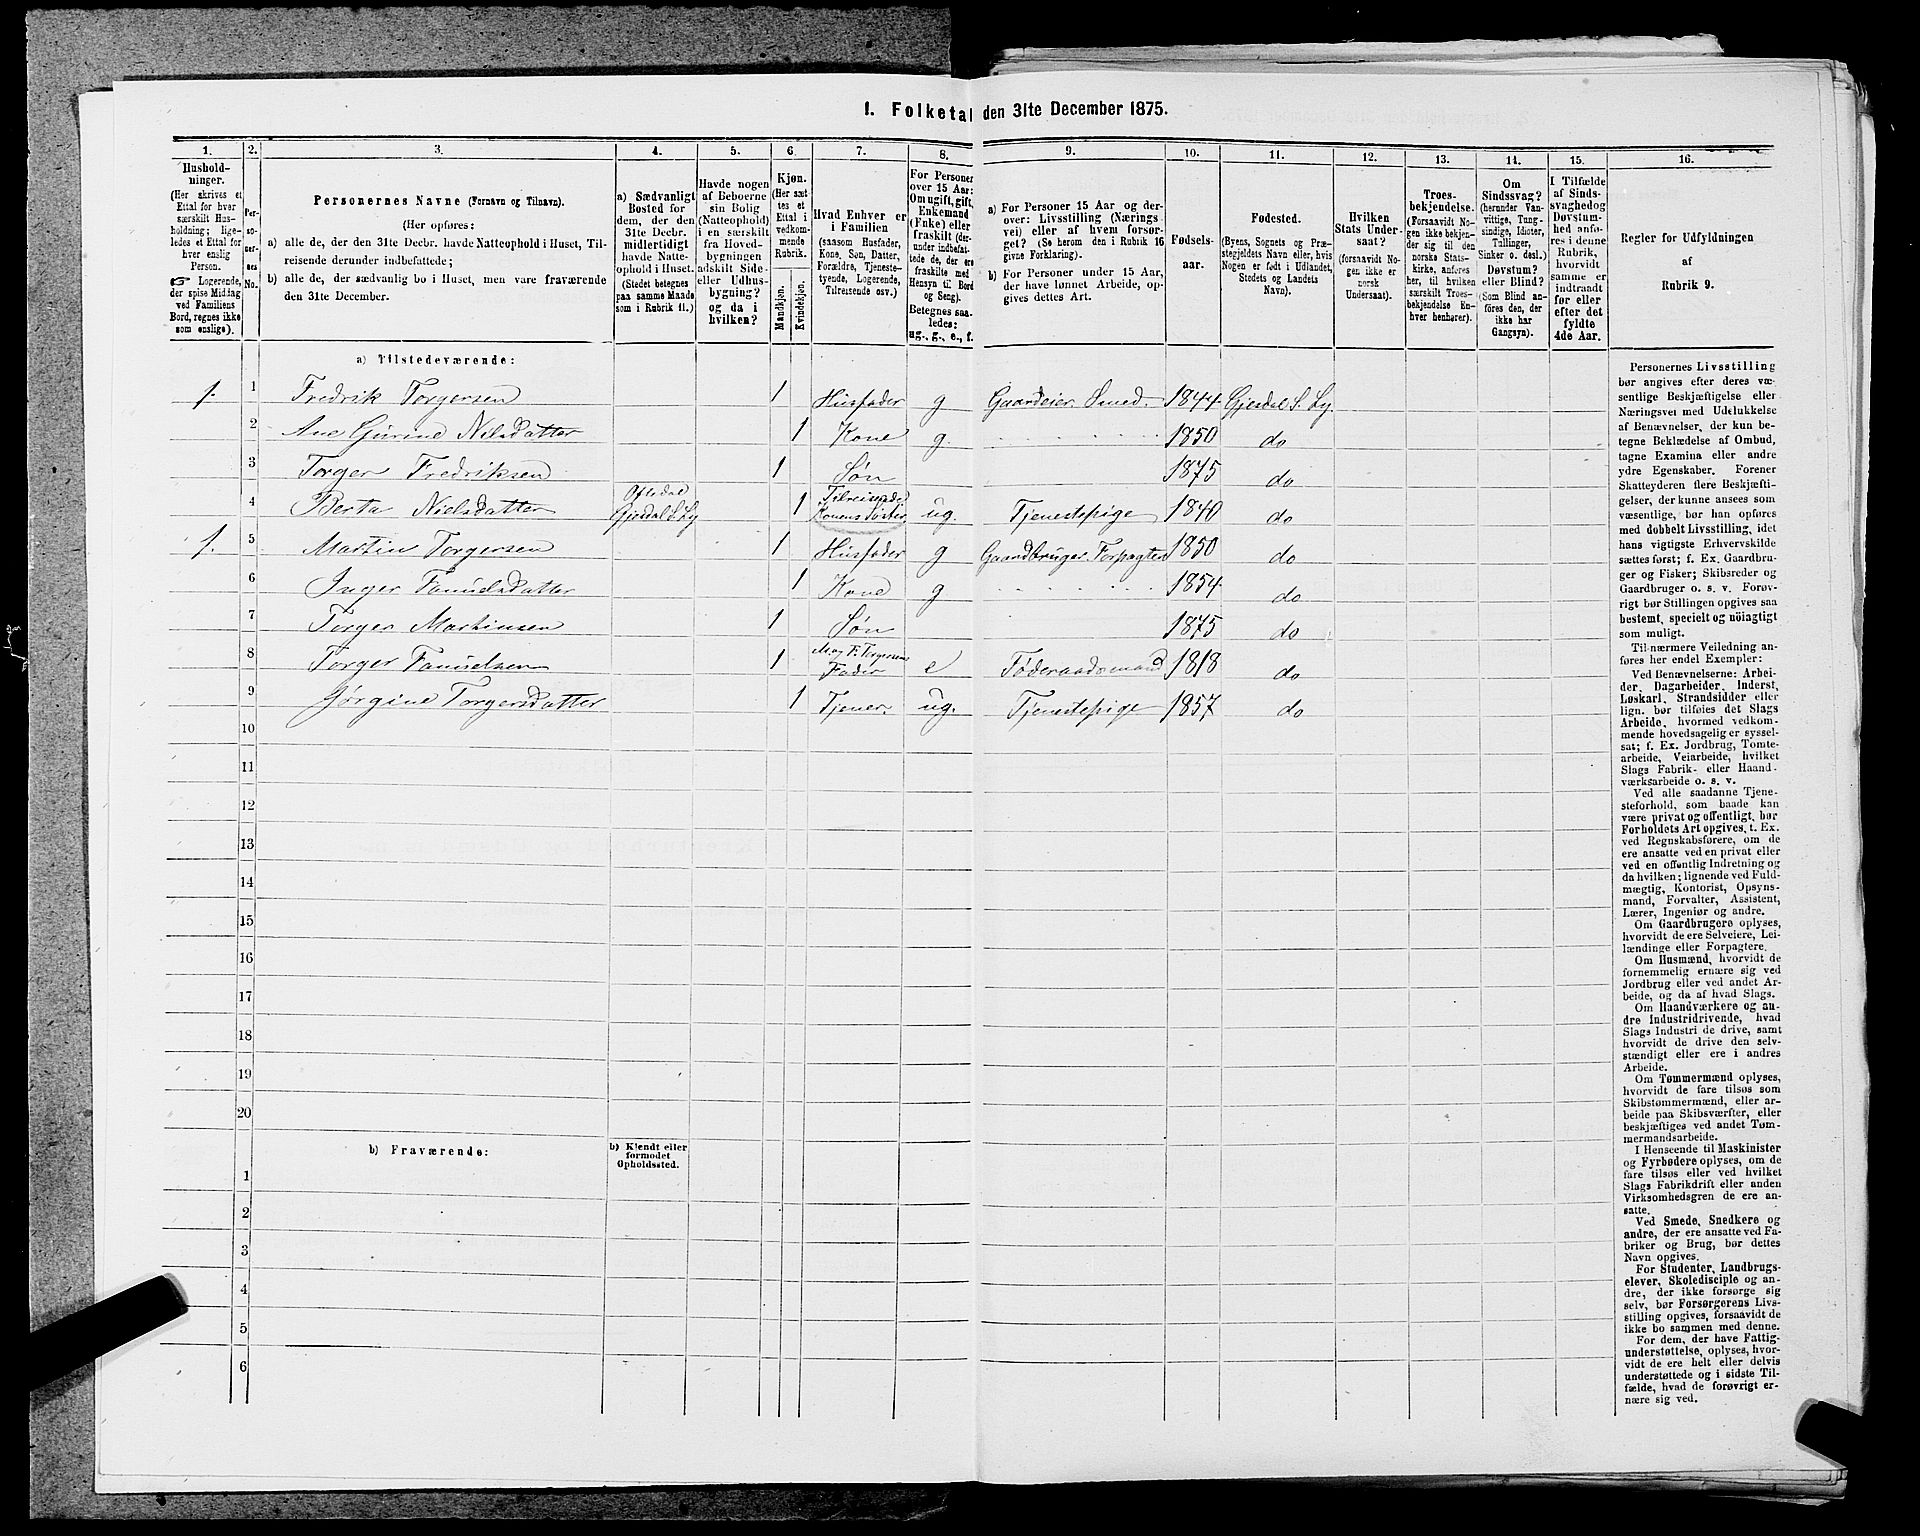 1. Folketal den 31te December 1875.
1.
Hushold-
ninger.
(Her skrives et
Ettal for hver
særskilt Hus-
holdning; lige-
ledes et Ettal for
hver enslig
Person.
☞ Logerende,
der spise Middag
ved Familiens
Bord, regnes ikke
som enslige).
2.
Per-
so-
ner-
nes
No.
3.
Personernes Navne (Fornavn og Tilnavn).
(Her opføres:
a) alle de, der den 31te Decbr. havde Natteophold i Huset, Til-
reisende derunder indbefattede;
b) alle de, der sædvanlig bo i Huset, men vare fraværende
den 31te December.
4.
a) Sædvanligt
Bosted for
dem, der den
31te Decbr.
midlertidigt
havde Natte-
ophold i Huset.
(Stedet betegnes
paa samme Maade
som i Rubrik 11.)
5.
Havde nogen
af Beboerne
sin Bolig
(Natteophold)
i en særskilt
fra Hoved-
bygningen
adskilt Side-
eller Udhus-
bygning?
og da i
hvilken?
6.
Kjøn.
(Her sæt-
tes et
Ettal i
vedkom-
mende
Rubrik.
Mandkjøn.
Kvindekjøn.
7.
Hvad Enhver er
i Familien
(saasom Husfader,
Kone, Søn, Datter,
Forældre, Tjeneste-
tyende, Logerende,
Tilreisende osv.)
8.
For Personer
over 15 Aar:
Om ugift, gift,
Enkemand
(Enke) eller
fraskilt (der-
under indbefat-
tede de, der ere
fraskilte med
Hensyn til Bord
og Seng).
Betegnes saa-
ledes:
ug., g., e., f.
9.
a) For Personer 15 Aar og der-
over: Livsstilling (Nærings-
vei) eller af hvem forsør-
get? (Se herom den i Rubrik 16
givne Forklaring).
b) For Personer under 15 Aar,
der have lønnet Arbeide, op-
gives dettes Art.
10.
Fødsels-
aar.
11.
Fødested.
(Byens, Sognets og Præ-
stegjeldets Navn eller, hvis
Nogen er født i Udlandet,
Stedets og Landets
Navn).
12.
Hvilken
Stats Under-
saat?
(forsaavidt No-
gen ikke er
norsk
Undersaat).
13.
Troes-
bekjendelse.
(Forsaavidt No-
gen ikke bekjen-
der sig til den
norske Stats-
kirke, anføres
her, til hvilken
særskilt Troes-
bekjendelse En-
hver henhører).
14.
Om
Sindssvag?
(herunder Van-
vittige, Tung-
sindige, Idioter,
Tullinger,
Sinker o. desl.)
Døvstum?
eller Blind?
(Som Blind an-
føres den, der
ikke har
Gangsyn).
15.
I Tilfælde
af Sinds-
svaghed og
Døvstum-
hed anfø-
res i denne
Rubrik,
hvorvidt
samme er
indtraadt
før eller
efter det
fyldte
4de Aar.
16.
Regler for Udfyldningen
af
Rubrik 9.
a) Tilstedeværende:
1. 1 Fredrik Torgersen 1 Husfader g Gaardeier. Smed. 1844 Gjesdal S. Ly.
2 Ane Gurine Nilsdatter 1 Kone g. 1850 do
3 Torger Fredriksen 1 Søn 1875 do
4 Berta Nielsdatter Oftedal
Gjesdal S. Ly 1 Tilreisende
Konens Søster ug. Tjenestepige 1840 do
1. 5 Martin Torgersen 1 Husfader g Gaardbruger. Forpagter 1850 do
6 Inger Tønnesdatter 1 Kone g 1854 do
7 Torger Martinsen 1 Søn 1875 do
8 Torger 1 M. og F. Torgersens
Fader e Føderaadsmand 1818 do
9 Jørgine Torgersdatter 1 Tjener. ug. Tjenestepige 1857 do
10
11
12
13
14
15
16
17
18
19
20
b) Fraværende:
b) Kjendt eller
formodet
Opholdssted.
1
2
3
4
5
6
Personernes Livsstilling
bør angives efter deres væ-
sentlige Beskjæftigelse eller
Næringsvei med Udelukkelse
af Benævnelser, der kun be-
tegne Beklædelse af Ombud,
tagne Examina eller andre
ydre Egenskaber. Forener
Skatteyderen flere Beskjæfti-
gelser, der kunne ansees som
væsentlige, bør han opføres
med dobbelt Livsstilling, idet
hans vigtigste Erhvervskilde
sættes først; f. Ex. Gaardbru-
ger og Fisker; Skibsreder og
Gaardbruger o. s. v. Forøv-
rigt bør Stillingen opgives saa
bestemt, specielt og nöiagtigt
som muligt.
Til nærmere Veiledning an-
føres her endel Exempler:
Ved Benævnelserne: Arbei-
der, Dagarbeider, Inderst,
Løskarl, Strandsidder eller
lign. bør tilføies det Slags
Arbeide, hvormed vedkom-
mende hovedsagelig er syssel-
sat; f. Ex. Jordbrug, Tomte-
arbeide, Veiarbeide, hvilket
Slags Fabrik- eller Haand-
værksarbeide o. s. v.
Ved alle saadanne Tjene-
steforhold, som baade kan
være privat og offentligt, bør
Forholdets Art opgives, t. Ex.
ved Regnskabsførere, om de
ere ansatte ved en privat eller
ved en offentlig Indretning og
da hvilken; lignende ved Fuld-
mægtig, Kontorist, Opsyns-
mand, Forvalter, Assistent,
Lærer, Ingeniør og andre.
Om Gaardbrugere oplyses,
hvorvidt de ere Selveiere, Lei-
lændinge eller Forpagtere.
Om Husmænd, hvorvidt de
fornemmelig ernære sig ved
Jordbrug eller ved andet Ar-
beide, og da af hvad Slags.
Om Haandværkere og an-
dre Industridrivende, hvad
Slags Industri de drive, samt
hvorvidt de drive den selv-
stændigt eller ere i andres
Arbeide.
Om Tømmermænd oplyses,
hvorvidt de fare tilsøs som
Skibstømmermænd, eller ar-
beide paa Skibsværfter, eller
beskjæftiges ved andet Tøm-
mermandsarbeide.
I Henseende til Maskinister
og Fyrbødere oplyses, om de
fare tilsøs eller ved hvilket
Slags Fabrikdrift eller anden
Virksomhedsgren de ere an-
satte.
Ved Smede, Snedkere og
andre, der ere ansatte ved Fa-
briker og Brug, bør dettes
Navn opgives.
For Studenter, Landbrugs-
elever, Skoledisciple og an-
dre, der ikke forsørge sig
selv, bør Forsørgerens Livs-
stilling opgives, forsaavidt de
ikke bo sammen med denne.
For dem, der have Fattig-
understøttelse, oplyses, hvor-
vidt de ere helt eller delvis
understøttede og i sidste Til-
fælde, hvad de forøvrigt er-
nære sig ved.